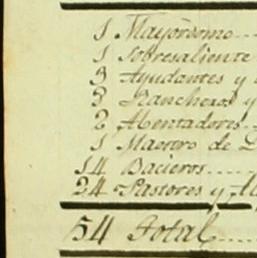 1 Mayordomo
1 Sobresaliente
3 Ayudantes y
3 Rancheros y
2 Atentadores
1 Maestro de
14 Bacieros
24 Pastores y
54 Total